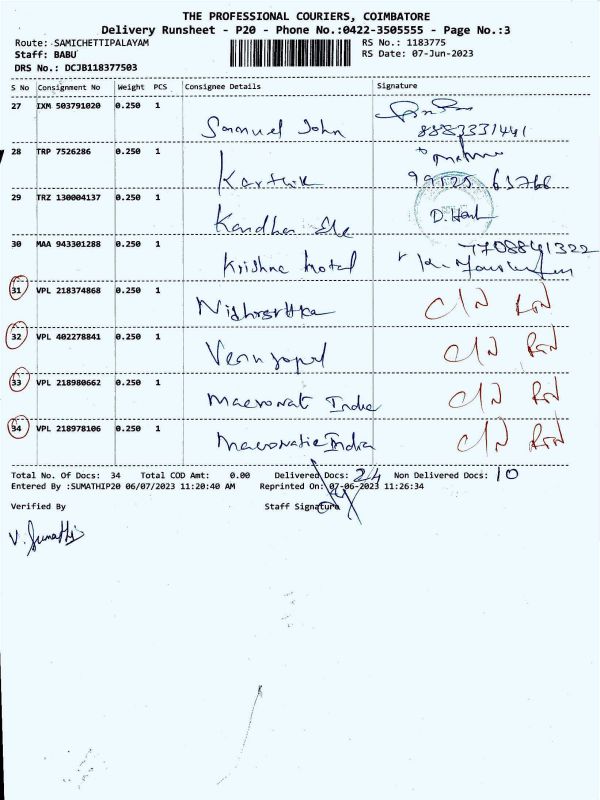 THE PROFESSIONAL COURIERS, COIMBATORE
Delivery Runsheet - P20 - Phone No.:0422-3505555 - Page No.:3
Route: SAMICHETTIPALAYAM RS No.: 1183775
Staff: BABU RS Date: 07-Jun-2023
DRS No.: DCJB118377503
S No Consignment No Weight PCS Consignee Details Signature
27 IXM 503791020 0.250 1
Samuel John 8883331441
28 TRP 7526286 0.250 1
Karthik 99525 63768
29 TRZ 130004137 0.250 1
Kandha Ele
30 MAA 943301288 0.250 1
7708841322
Krishna hotal
31 VPL 218374868 0.250 1
C/N
32 VPL 402278841 0.250 1
C/N
33 VPL 218980662 0.250 1
India C/N
34 VPL 218978106 0.250 1
India C/N
Total No. Of Docs: 34 Total COD Amt: 0.00 Delivered Docs: 24 Non Delivered Docs: 10
Entered By :SUMATHIP20 06/07/2023 11:20:40 AM Reprinted On: 07-06-2023 11:26:34
Verified By Staff Signature
V. Sumathi